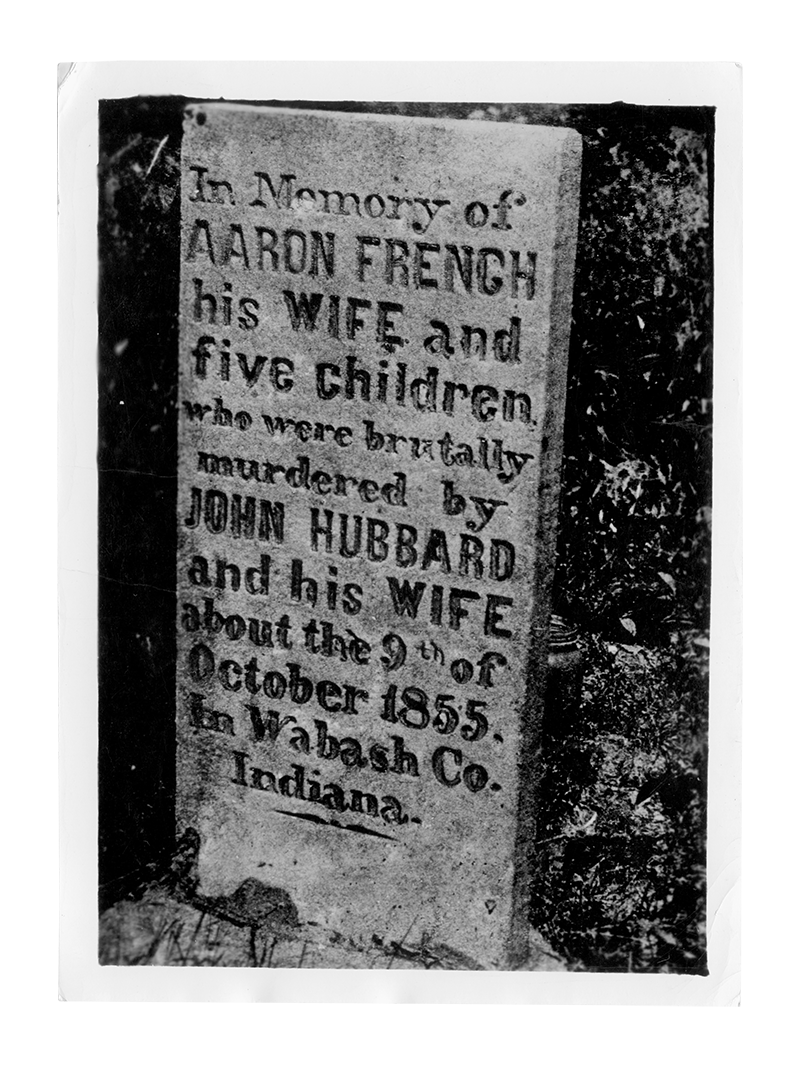 In Memory of
AARON FRENCH
his WIFE and
five children
who were brutally
murdered by
JOHN HUBBARD
and his WIFE
about the 9th of
October 1855.
In Wabash Co.
Indiana.